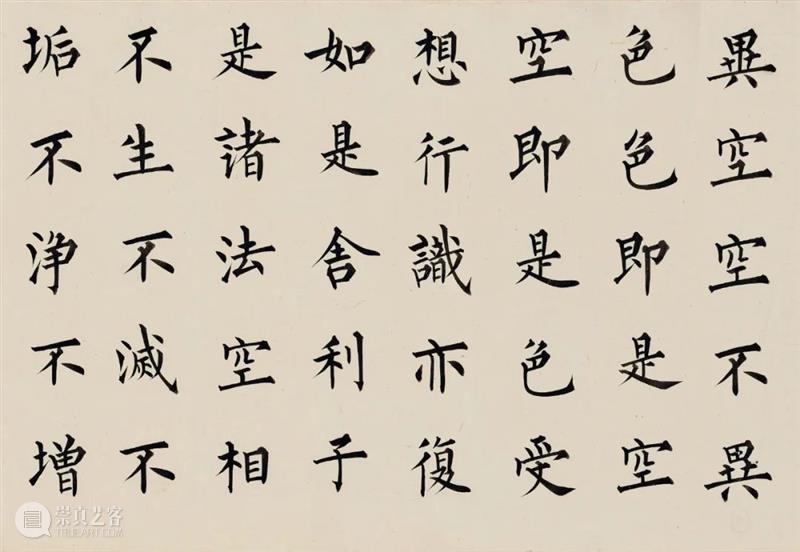 異空空不異
色色即是空
空即是色受
想行識亦復
如是舍利子
是諸法空相
不生不滅不
垢不浄不増
崇真艺客
TRUEART.COM